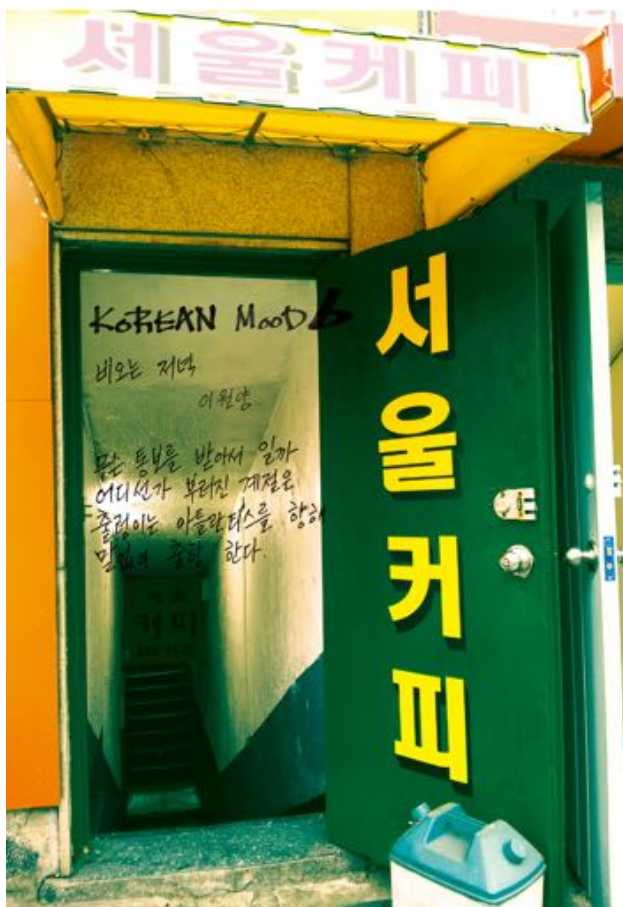 서울커피
KOREAN MOOD 6
비오는 저녁
이원양
무슨 통보를 받아서 일까
어디선가 부러진 계절은
출렁이는 아틀란티스를 향해
말없이 출항 한다.
커피
서울커피